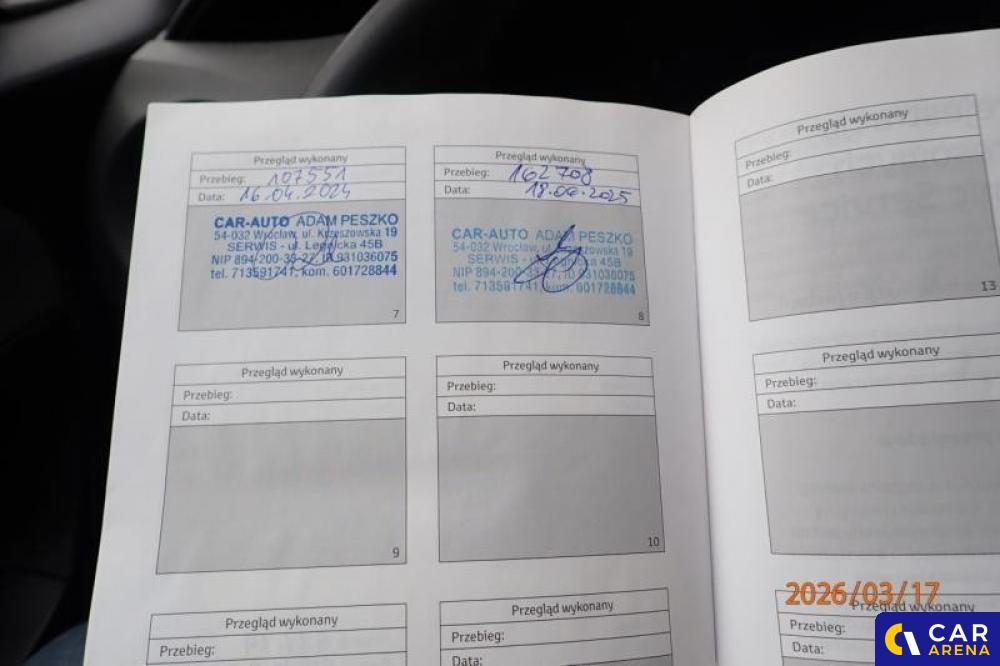 Przegląd wykonany
Przebieg: 107551
Data: 16.04.2024
CAR-AUTO ADAM PESZKO
54-032 Wrocław, ul. Krzeszowska 19
SERWIS - ul. Legnicka 45B
NIP 894-200-33-27, ID 931036075
tel. 713591741, kom. 601728844
7
Przegląd wykonany
Przebieg: 162708
Data: 18.06.2025
CAR-AUTO ADAM PESZKO
54-032 Wrocław, ul. Krzeszowska 19
SERWIS - ul. Legnicka 45B
NIP 894-200-33-27, ID 931036075
tel. 713591741, kom. 601728844
8
Przegląd wykonany
Przebieg:
Data:
9
Przegląd wykonany
Przebieg:
Data:
10
Przegląd wykonany
Przebieg:
Przegląd wykonany
Przebieg:
Data:
Przegląd wykonany
Przebieg:
Data:
13
Przegląd wykonany
Przebieg:
Data:
2026/03/17
Przegląd wykonany
Przebieg:
Data:
CAR
ARENA